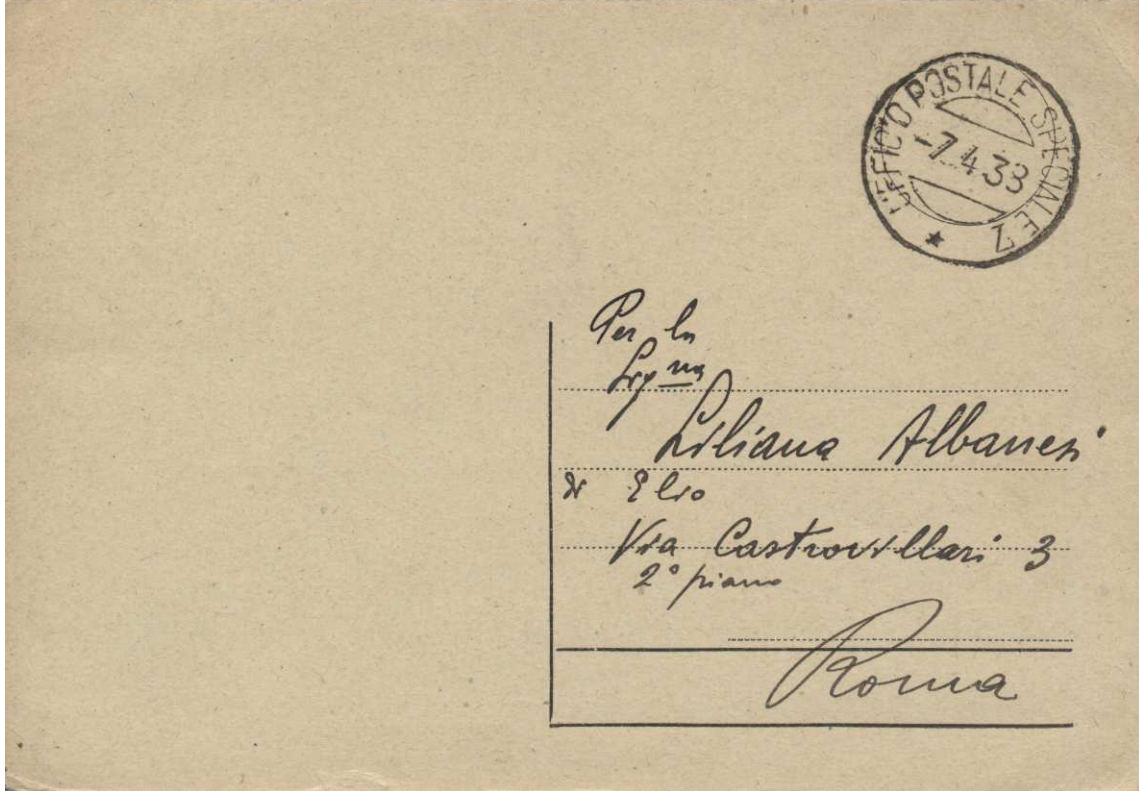 UFFICIO POSTALE SPECIALE 7
-7.4.38
Per la
Sig.na
Liliana Albanesi
di Elio
Via Castrovillari 3
2° piano
Roma